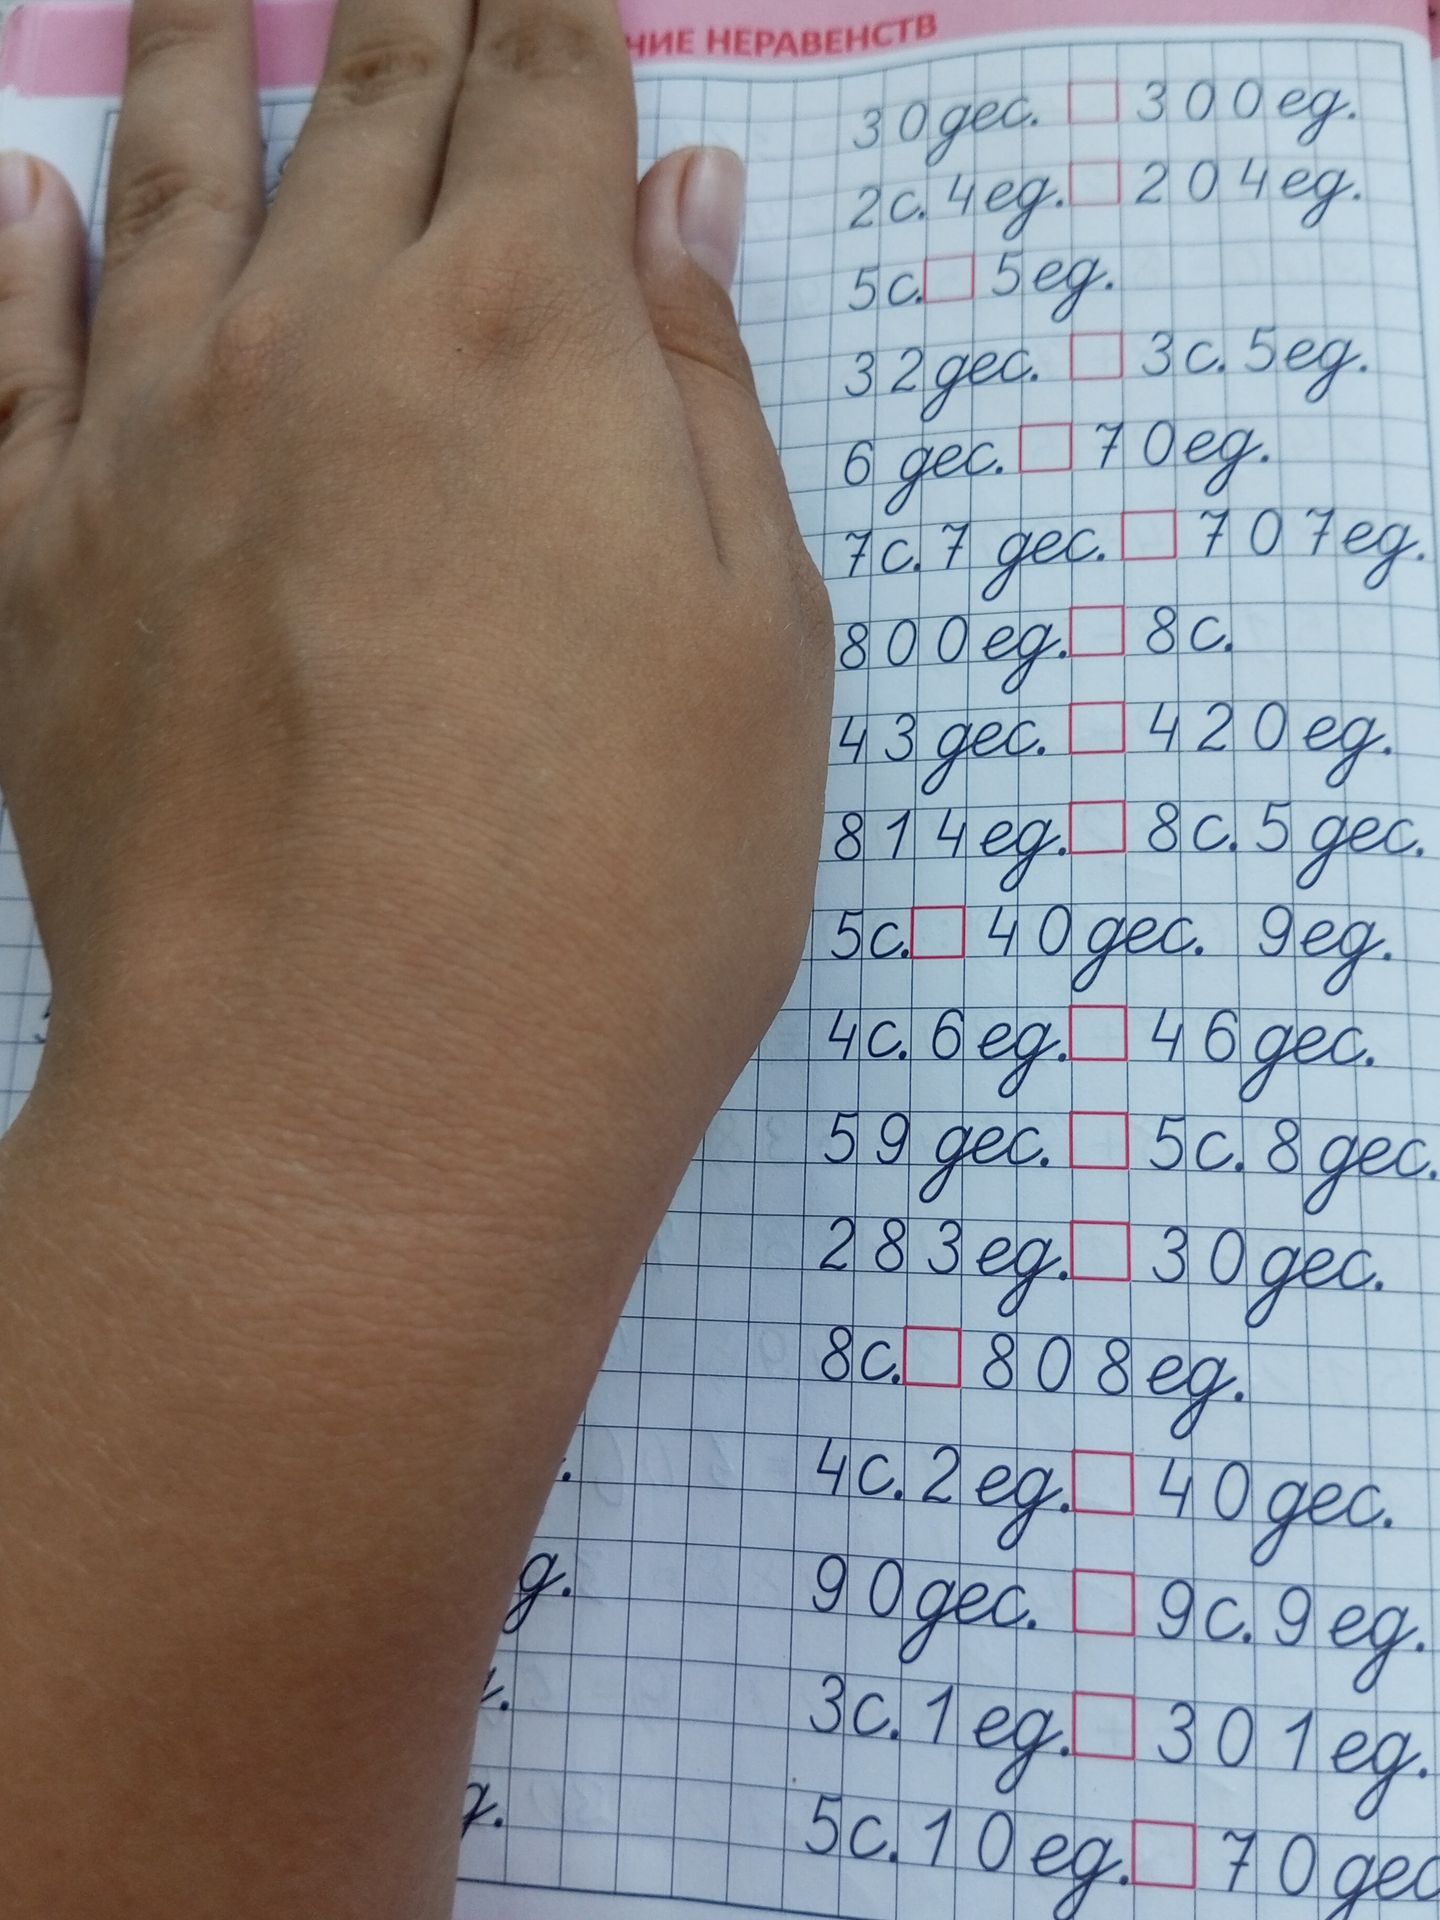 НЕРАВЕНСТВ
30 дес. □ 300 ед.
2 с. 4 ед. □ 204 ед.
5 с. □ 5 ед.
32 дес. □ 3 с. 5 ед.
6 дес. □ 70 ед.
7 с. 7 дес. □ 707 ед.
800 ед. □ 8 с.
43 дес. □ 420 ед.
814 ед. □ 8 с. 5 дес.
5 с. □ 40 дес. 9 ед.
4 с. 6 ед. □ 46 дес.
59 дес. □ 5 с. 8 дес.
283 ед. □ 30 дес.
8 с. □ 808 ед.
4 с. 2 ед. □ 40 дес.
90 дес. □ 9 с. 9 ед.
3 с. 1 ед. □ 301 ед.
5 с. 10 ед. □ 70 дес